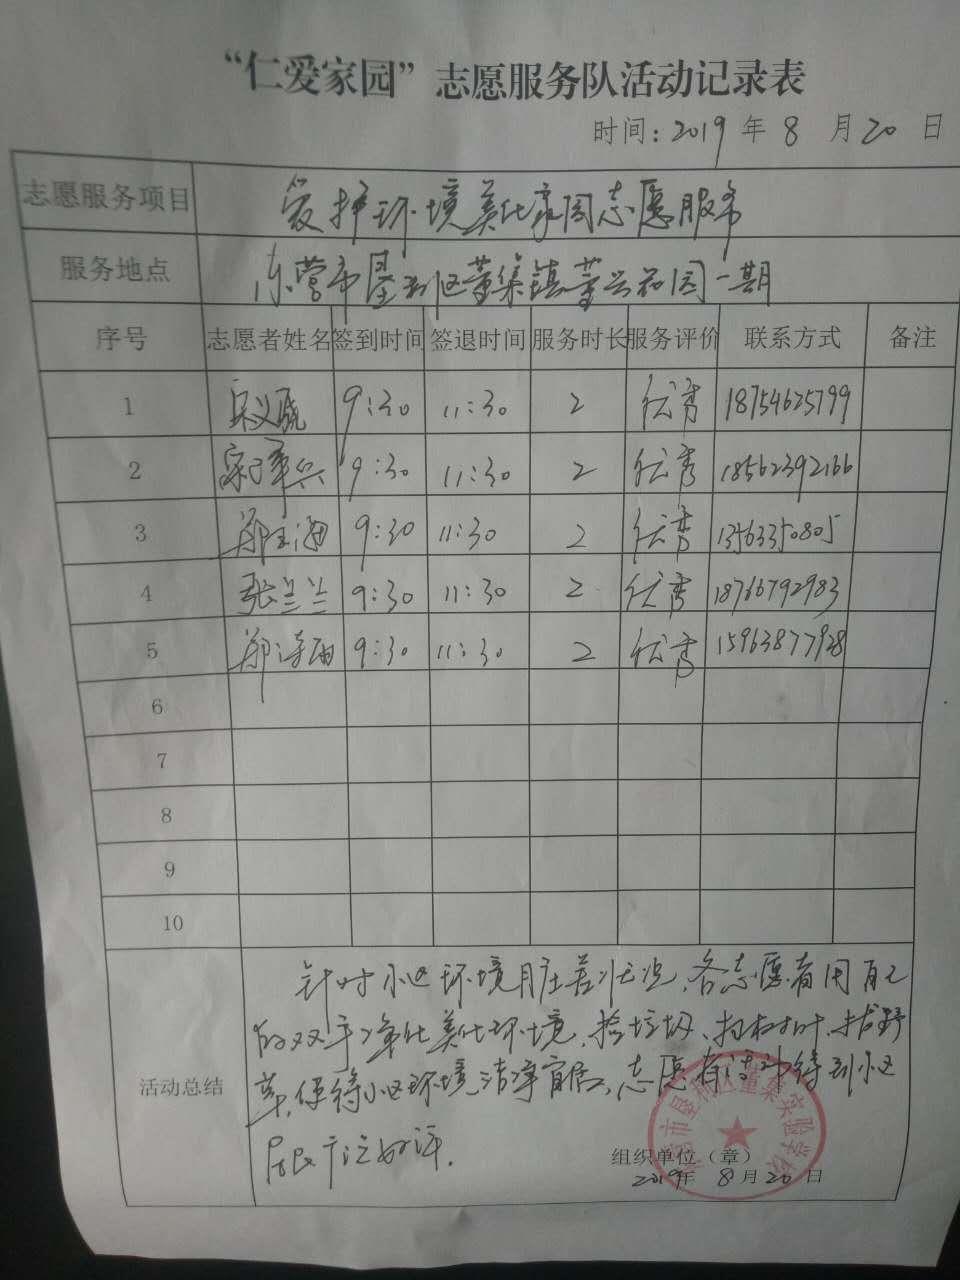 “仁爱家园”志愿服务队活动记录表
时间：2019 年 8 月 20 日
志愿服务项目 爱护环境美化家园志愿服务
服务地点 东营市垦利区董集镇董兴花园一期
序号 志愿者姓名 签到时间 签退时间 服务时长 服务评价 联系方式 备注
1 9:30 11:30 2 优秀 18754625799
2 9:30 11:30 2 优秀 18562392166
3 郑玉海 9:30 11:30 2 优秀 13563350805
4 张兰兰 9:30 11:30 2 优秀 18766792983
5 郑 9:30 11:30 2 优秀 15963877928
6
7
8
9
10
活动总结
针对小区环境脏差状况，各志愿者用自己
的双手净化美化环境，捡垃圾、扫树叶、拔野
草，保持小区环境洁净宜居，志愿者活动得到小区
居民广泛好评．
市垦利区董集实验学校
组织单位（章）
2019年 8月20日